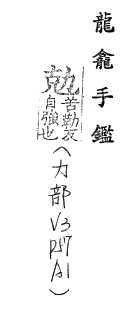 龍龕手鑑
勀 苦勒反
自強也
(力部
V3
P57
A1)